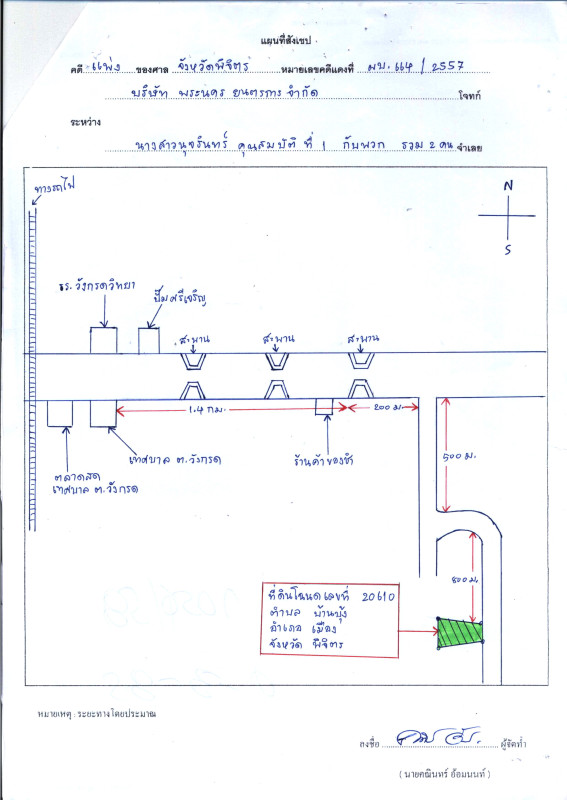 แผนที่สังเขป
คดี แพ่ง ของศาล จังหวัดพิจิตร หมายเลขคดีแดงที่ ผบ. 664 / 2557
บริษัท พระนคร ยนตรการ จำกัด โจทก์
ระหว่าง
นางสาวนุจรินทร์ คุณสมบัติ ที่ 1 กับพวก รวม 2 คน จำเลย
ทางรถไฟ
N
S
รร. วังกรดวิทยา
ปั๊มศรีเจริญ
สะพาน
สะพาน
สะพาน
1.4 กม.
200 ม.
ตลาดสด
เทศบาล ต. วังกรด
เทศบาล ต. วังกรด
ร้านค้าของชำ
500 ม.
800 ม.
ที่ดินโฉนดเลขที่ 20610
ตำบล บ้านบุ่ง
อำเภอ เมือง
จังหวัด พิจิตร
หมายเหตุ : ระยะทางโดยประมาณ
ลงชื่อ ผู้จัดทำ
( นายคณินทร์ อ้อมนนท์ )